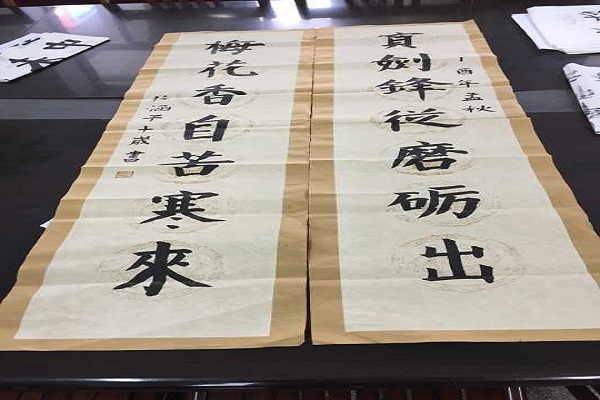 寶劍鋒從磨砺出
丁酉年孟秋
梅花香自苦寒來
十歲書